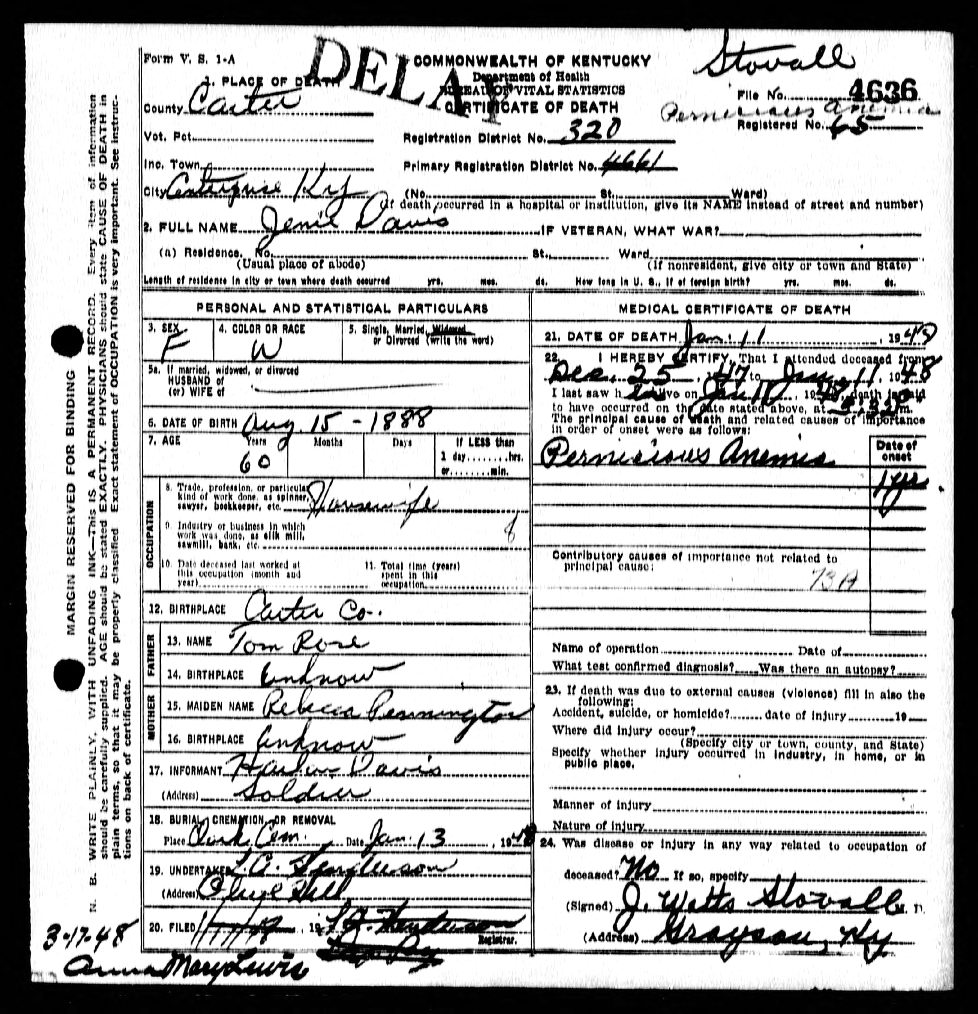 Form V. S. 1-A
COMMONWEALTH OF KENTUCKY
Department of Health
BUREAU OF VITAL STATISTICS
CERTIFICATE OF DEATH
Stovall
File No. 4636
Pernicious Anemia
Registered No. 65
1. PLACE OF DEATH
County Carter
Vot. Pct.
Inc. Town
City Enterprise Ky
Registration District No. 320
Primary Registration District No. 4661
(No. St. Ward)
(If death occurred in a hospital or institution, give its NAME instead of street and number)
2. FULL NAME Jenie Davis IF VETERAN, WHAT WAR?
(a) Residence. No. St., Ward.
(Usual place of abode) (If nonresident, give city or town and State)
Length of residence in city or town where death occurred yrs. mos. ds. How long in U. S., if of foreign birth? yrs. mos. ds.
PERSONAL AND STATISTICAL PARTICULARS
3. SEX F
4. COLOR OR RACE W
5. Single, Married, Widowed
or Divorced (write the word)
5a. If married, widowed, or divorced
HUSBAND of
(or) WIFE of
6. DATE OF BIRTH Aug 15 - 1888
7. AGE Years Months Days If LESS than
60 1 day hrs.
or min.
OCCUPATION
8. Trade, profession, or particular
kind of work done, as spinner,
sawyer, bookkeeper, etc. Housewife
9. Industry or business in which
work was done, as silk mill,
sawmill, bank, etc.
10. Date deceased last worked at
this occupation (month and
year)
11. Total time (years)
spent in this
occupation
12. BIRTHPLACE Carter Co.
FATHER
13. NAME Tom Rose
14. BIRTHPLACE Unknow
MOTHER
15. MAIDEN NAME Rebecca Pennington
16. BIRTHPLACE Unknow
17. INFORMANT Davis
(Address) Soldier
18. BURIAL, CREMATION, OR REMOVAL
Place Clark Cem. Date Jan. 13, 1948
19. UNDERTAKER
(Address) Olive Hill
20. FILED 19
Registrar.
MEDICAL CERTIFICATE OF DEATH
21. DATE OF DEATH Jan. 11, 1948
22. I HEREBY CERTIFY, That I attended deceased from
Dec. 25, 1947 to Jan. 11, 1948
I last saw h alive on Jan 10, 19 death is said
to have occurred on the date stated above, at m.
The principal cause of death and related causes of importance
in order of onset were as follows:
Date of
onset
Pernicious Anemia
1 yr
Contributory causes of importance not related to
principal cause:
73A
Name of operation Date of
What test confirmed diagnosis? Was there an autopsy?
23. If death was due to external causes (violence) fill in also the
following:
Accident, suicide, or homicide? date of injury 19
Where did injury occur?
(Specify city or town, county, and State)
Specify whether injury occurred in industry, in home, or in
public place.
Manner of injury
Nature of injury
24. Was disease or injury in any way related to occupation of
deceased? No If so, specify
(Signed) J. Watts Stovall M. D.
(Address) Grayson, Ky
3-17-48
Anna Mary Lewis
MARGIN RESERVED FOR BINDING
N. B. WRITE PLAINLY, WITH UNFADING INK—This is A PERMANENT RECORD. Every item of information
should be carefully supplied. AGE should be stated EXACTLY. PHYSICIANS should state CAUSE OF DEATH in
plain terms, so that it may be properly classified. Exact statement of OCCUPATION is very important. See instruc-
tions on back of certificate.